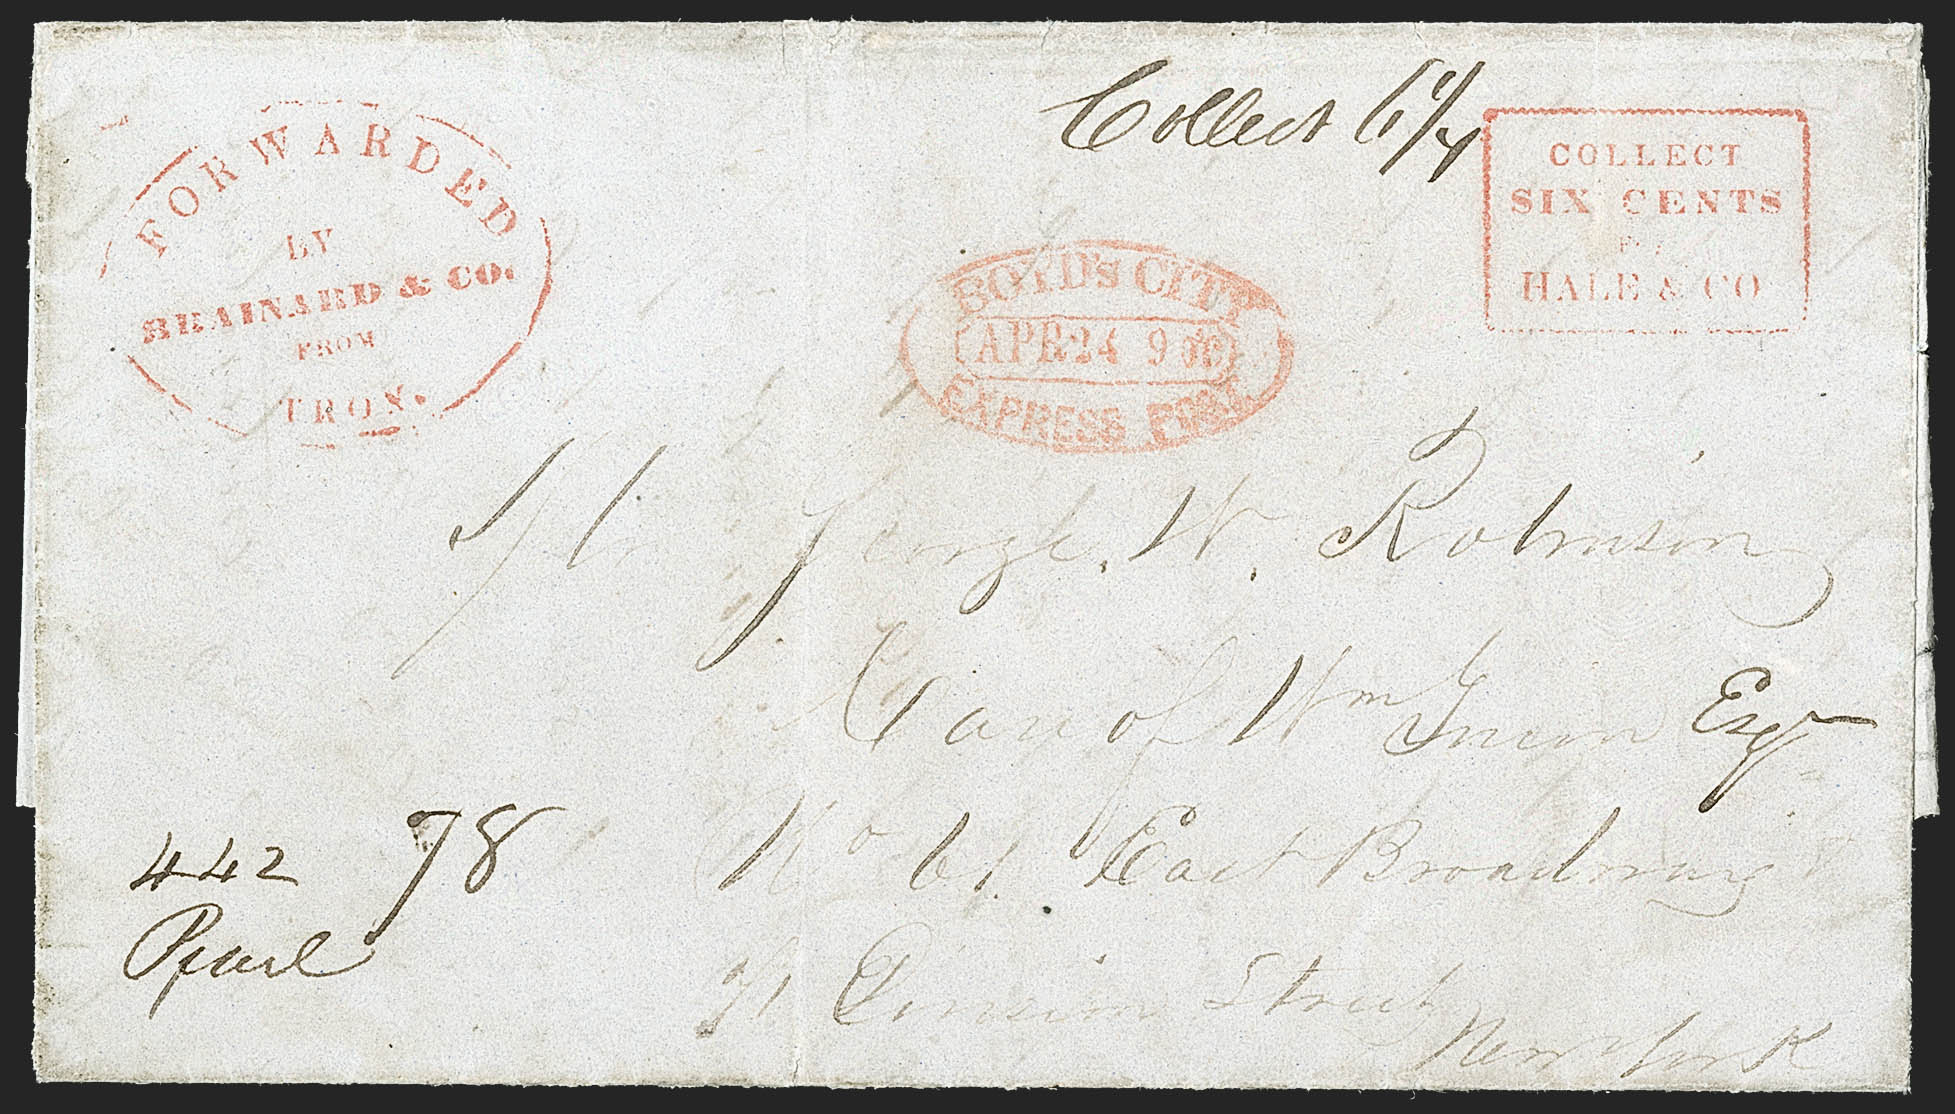 FORWARDED
BY
BRAINARD & CO.
FROM
TROY.
Collect 6
COLLECT
SIX CENTS
FOR
HALE & CO
BOYD'S CITY
APR 24 9 
EXPRESS POST
George. W. Robinson
Care of Wm Esqr
No 61 East Broadway
442 78
Pearl
71 Division Street
New York